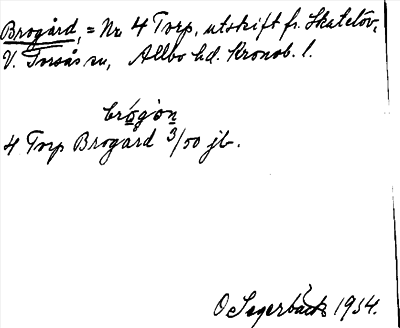 Brogård, = Nr 4 Torp, utskift fr. Skatelöv,
V. Torsås sn, Allbo hd. Kronob. l.
brógòn
4 Torp Brogård 3/50 jb.
O Segerbäck 1954.